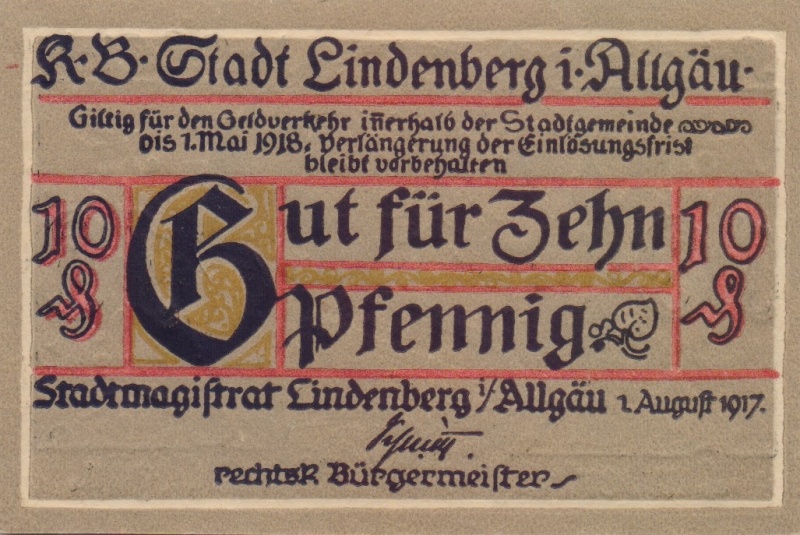 K. B. Stadt Lindenberg i. Allgäu.
Giltig für den Geldverkehr iñerhalb der Stadtgemeinde
bis 1. Mai 1918. Verlängerung der Einlösungsfrist
bleibt vorbehalten
10 ₰ Gut für Zehn 10 ₰
Pfennig.
Stadtmagistrat Lindenberg i/Allgäu 1. August 1917.
rechtsk Bürgermeister